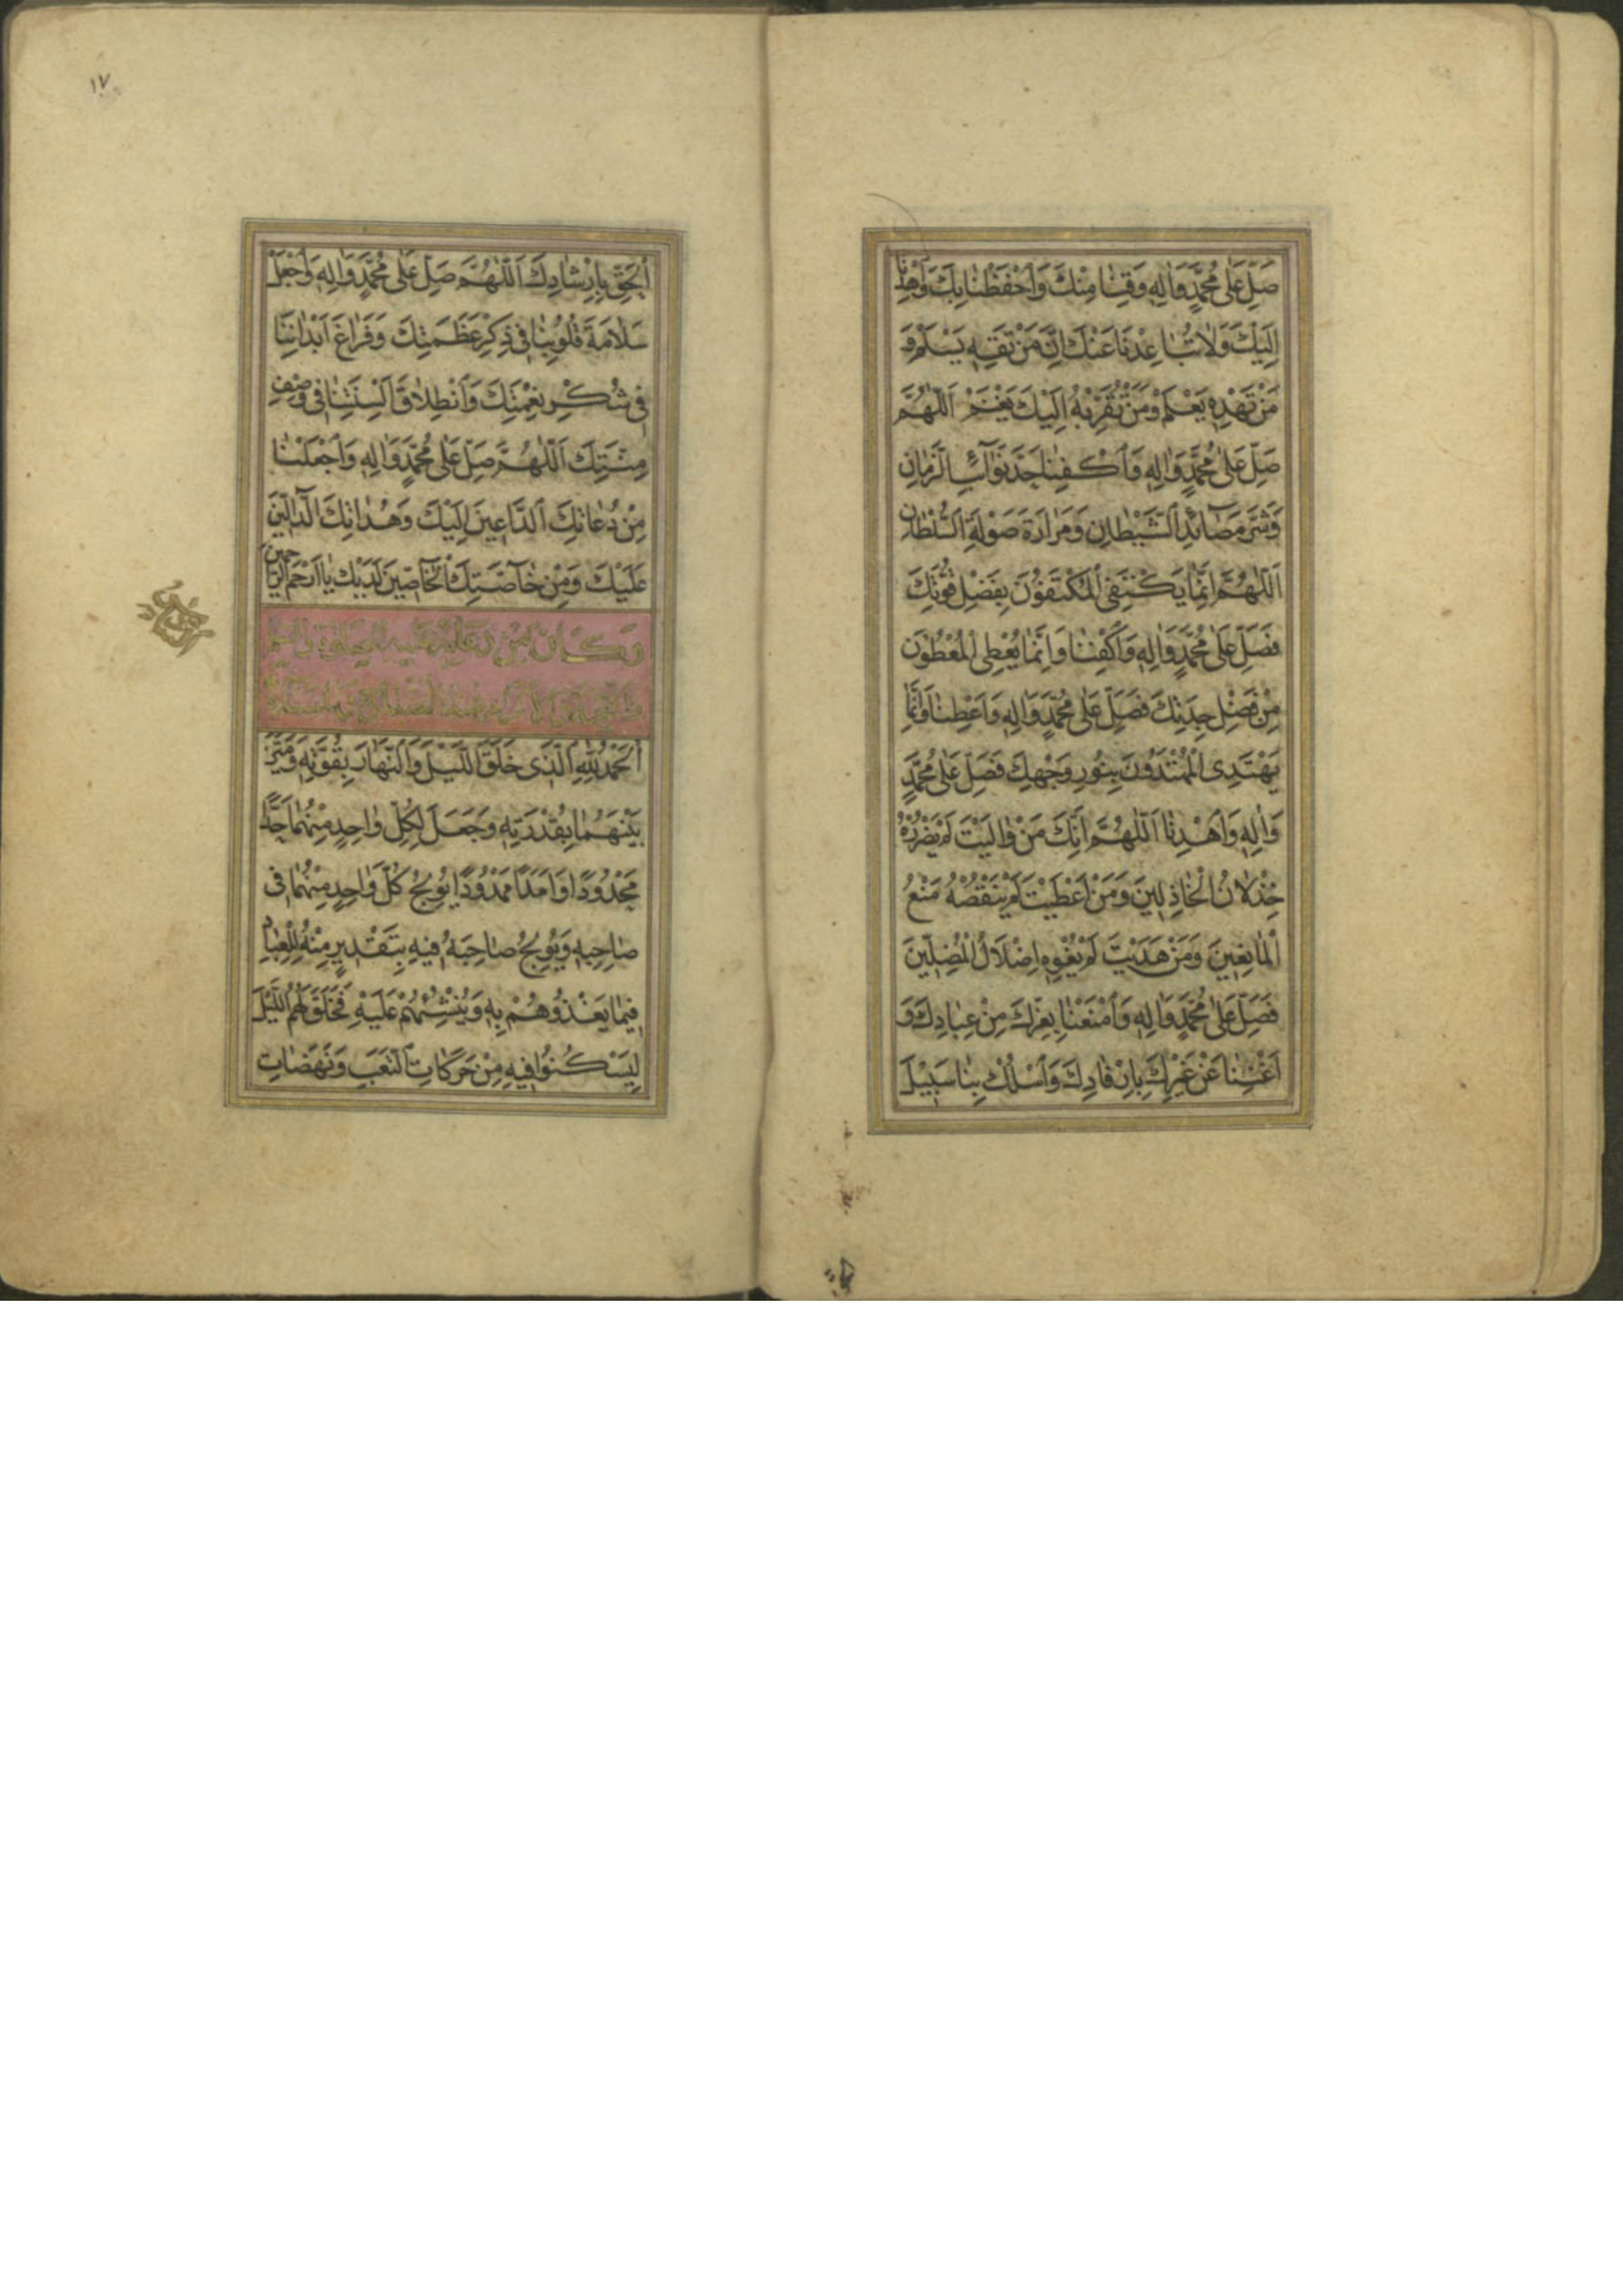 صَلِّ عَلٰى مُحَمَّدٍ وَاٰلِهٖ وَقِنٰا مِنْكَ وَاحْفَظْنٰا بِكَ وَاهْدِنٰا
اِلَيْكَ وَلٰا تُبٰاعِدْنٰا عَنْكَ اِنَّ مَنْ تَقِهٖ يَسْلَمْ وَ
مَنْ تَهْدِهٖ يَعْلَمْ وَمَنْ تُقَرِّبْهُ اِلَيْكَ يَغْنَمْ اَللّٰهُمَّ
صَلِّ عَلٰى مُحَمَّدٍ وَاٰلِهٖ وَاكْفِنٰا حَدَّ نَوٰآئِبِ الزَّمٰانِ
وَشَرَّ مَصٰآئِدِ الشَّيْطٰانِ وَمَرٰارَةَ صَوْلَةِ السُّلْطٰانِ
اَللّٰهُمَّ اِنَّمٰا يَكْتَفِى الْمُكْتَفُوْنَ بِفَضْلِ قُوَّتِكَ
فَصَلِّ عَلٰى مُحَمَّدٍ وَاٰلِهٖ وَاكْفِنٰا وَاِنَّمٰا يُعْطِى الْمُعْطُوْنَ
مِنْ فَضْلِ جِدَتِكَ فَصَلِّ عَلٰى مُحَمَّدٍ وَاٰلِهٖ وَاَعْطِنٰا وَاِنَّمٰا
يَهْتَدِى الْمُهْتَدُوْنَ بِنُورِ وَجْهِكَ فَصَلِّ عَلٰى مُحَمَّدٍ
وَاٰلِهٖ وَاهْدِنٰا اَللّٰهُمَّ اِنَّكَ مَنْ وٰالَيْتَ لَمْ يَضْرُرْهُ
خِذْلٰانُ الْخٰاذِلِينَ وَمَنْ اَعْطَيْتَ لَمْ يَنْقُصْهُ مَنْعُ
الْمٰانِعِينَ وَمَنْ هَدَيْتَ لَمْ يُغْوِهٖ اِضْلَالُ الْمُضِلِّينَ
فَصَلِّ عَلٰى مُحَمَّدٍ وَاٰلِهٖ وَامْنَعْنٰا بِعِزِّكَ مِنْ عِبٰادِكَ وَ
اَغْنِنٰا عَنْ غَيْرِكَ بِاِرْفٰادِكَ وَاسْلُكْ بِنٰا سَبِيْلَ
١٧
الْحَقِّ بِاِرْشٰادِكَ اَللّٰهُمَّ صَلِّ عَلٰى مُحَمَّدٍ وَاٰلِهٖ وَاجْعَلْ
سَلٰامَةَ قُلُوْبِنٰا فِى ذِكْرِ عَظَمَتِكَ وَفَرٰاغَ اَبْدٰانِنٰا
فِى شُكْرِ نِعْمَتِكَ وَانْطِلٰاقَ اَلْسِنَتِنٰا فِى وَصْفِ
مِنَّتِكَ اَللّٰهُمَّ صَلِّ عَلٰى مُحَمَّدٍ وَاٰلِهٖ وَاجْعَلْنٰا
مِنْ دُعٰاتِكَ الدّٰاعِينَ اِلَيْكَ وَهُدٰاتِكَ الدّٰالِّينَ
عَلَيْكَ وَمِنْ خٰآصَّتِكَ الْخٰاصِّينَ لَدَيْكَ يٰا اَرْحَمَ الرّٰاحِمِينَ
وَكَانَ مِنْ دُعَائِهِ عَلَيْهِ الصَّلٰوةُ وَالسَّلٰمُ
اَلْحَمْدُ لِلّٰهِ الَّذِى خَلَقَ اللَّيْلَ وَالنَّهٰارَ بِقُوَّتِهٖ وَمَيَّزَ
بَيْنَهُمٰا بِقُدْرَتِهٖ وَجَعَلَ لِكُلِّ وٰاحِدٍ مِنْهُمٰا حَدًّا
مَحْدُوْدًا وَاَمَدًا مَمْدُوْدًا يُوْلِجُ كُلَّ وٰاحِدٍ مِنْهُمٰا فِى
صٰاحِبِهٖ وَيُوْلِجُ صٰاحِبَهُ فِيْهِ بِتَقْدِيرٍ مِنْهُ لِلْعِبٰادِ
فِيمٰا يَغْذُوْهُمْ بِهٖ وَيُنْشِئُهُمْ عَلَيْهِ فَخَلَقَ لَهُمُ اللَّيْلَ
لِيَسْكُنُوْا فِيهِ مِنْ حَرَكٰاتِ التَّعَبِ وَنَهَضٰاتِ